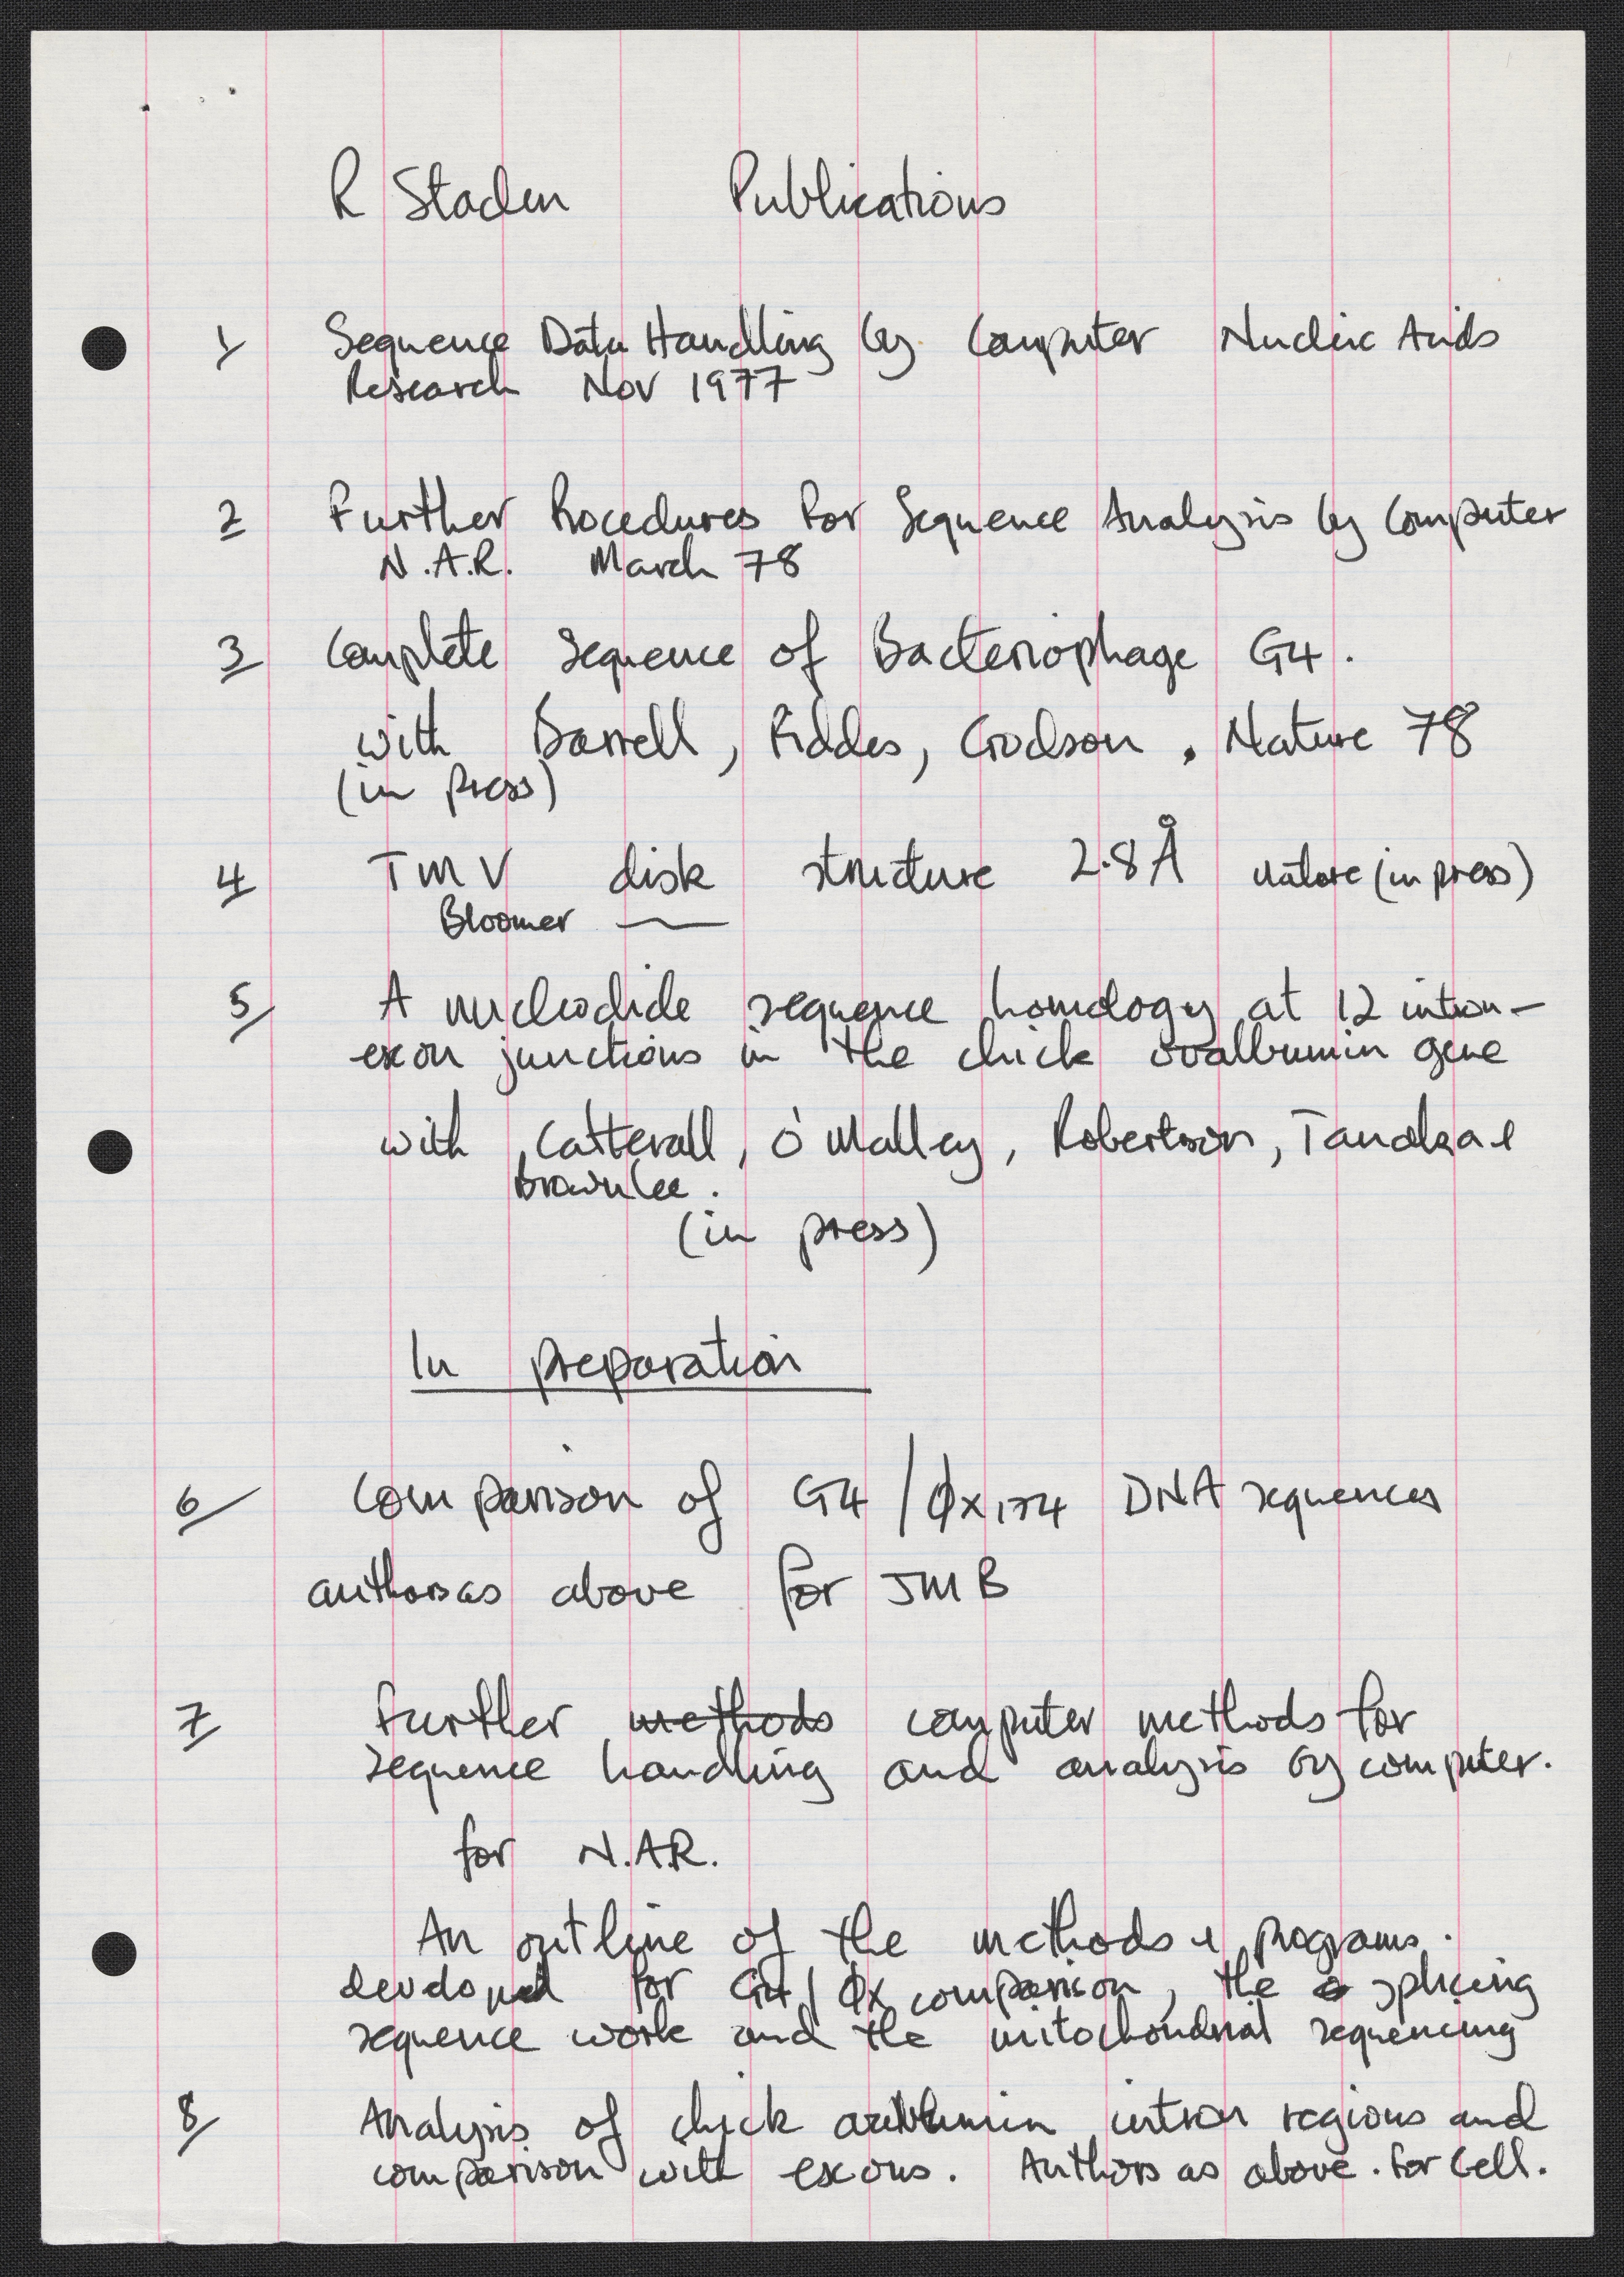 R Staden Publications
1/ Sequence Data Handling by Computer Nucleic Acids
Research Nov 1977
2 Further Procedures for Sequence Analysis by Computer
N.A.R. March 78
3 Complete Sequence of Bacteriophage G4.
with Barrell, Fiddes, Godson, Nature 78
(in press)
4 TMV disk structure 2.8Å nature (in press)
Bloomer
5/ A nucleotide sequence homology at 12 intron-
exon junctions in the chick ovalbumin gene
with Catterall, O'Malley, Robertson, Tanaka &
Brownlee.
(in press)
In preparation
6/ Comparison of G4/ØX174 DNA sequences
authors as above for JMB
7 Further methods computer methods for
sequence handling and analysis by computer.
for N.A.R.
An outline of the methods & programs.
developed for G4/ØX comparison, the splicing
sequence work and the mitochondrial sequencing
8/ Analysis of chick intron regions and
comparison with exons. Authors as above. for Cell.